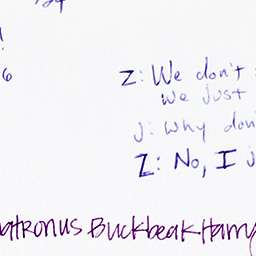 !
6
Z: We don't
we just
J: why don
Z: No, I j
atronus Buckbeak Harry